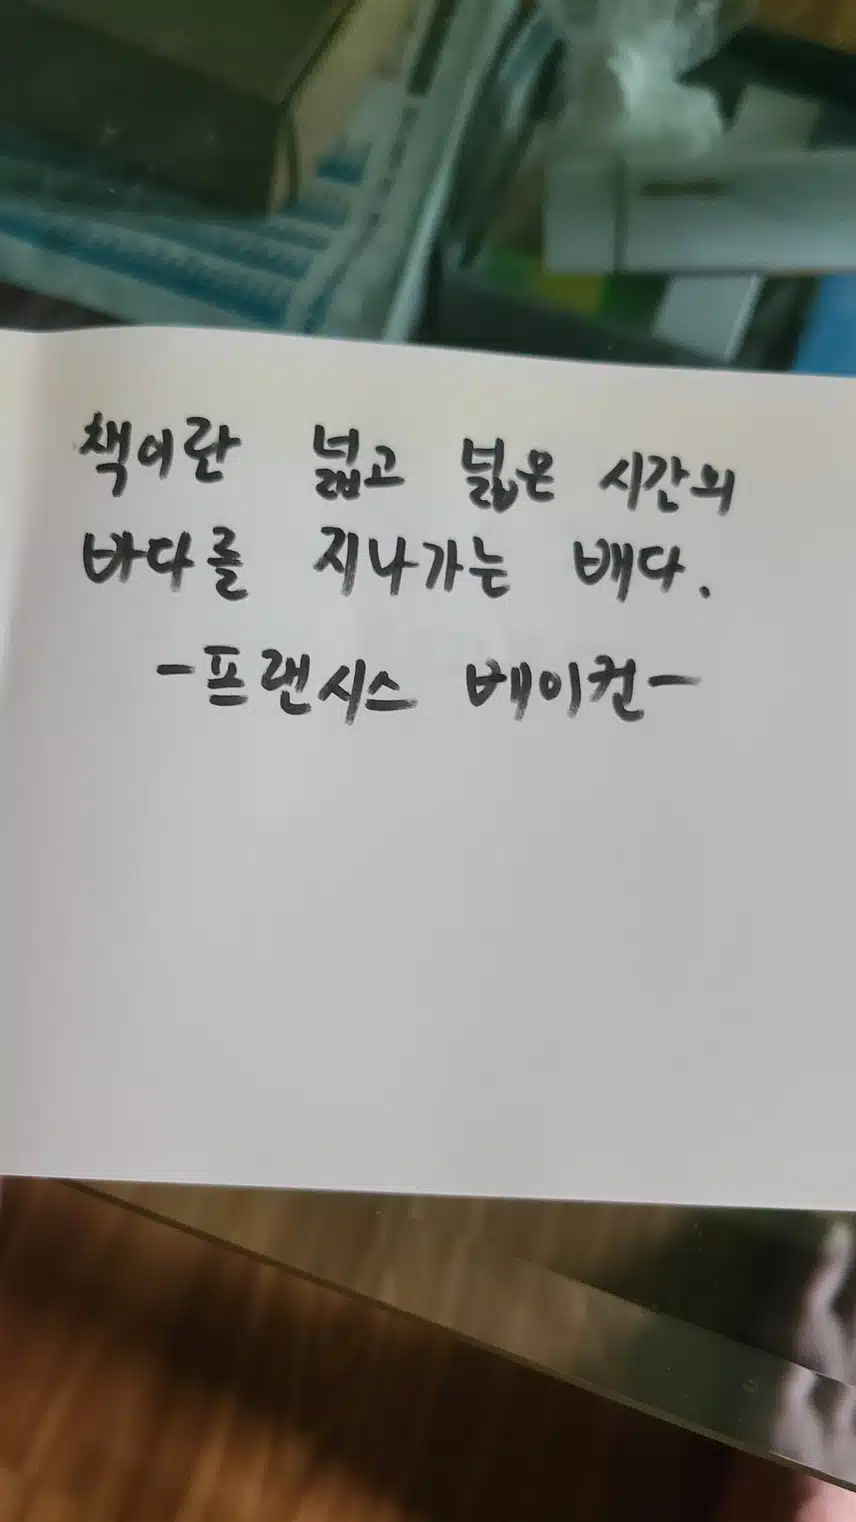 책이란 넓고 넓은 시간의
바다를 지나가는 배다.
-프랜시스 베이컨-